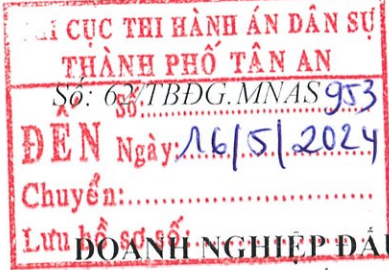 CỤC THI HÀNH ÁN DÂN SỰ
THÀNH PHỐ TÂN AN
Số: 62/TBĐG.MNAS
Số: 953
ĐẾN Ngày: 16/5/2024
Chuyển:
Lưu hồ sơ số:
DOANH NGHIỆP ĐẤ